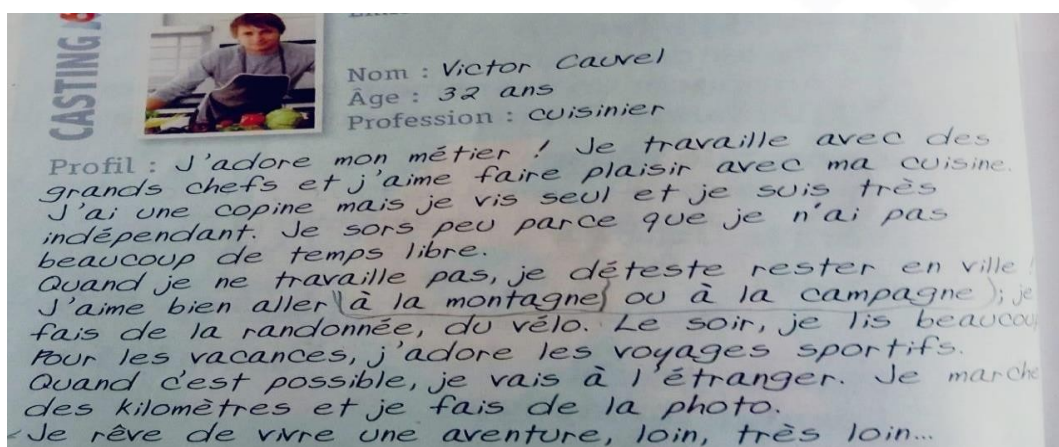 CASTING
Nom : Victor Cauvel
Âge : 32 ans
Profession : cuisinier
Profil : J'adore mon métier ! Je travaille avec des
grands chefs et j'aime faire plaisir avec ma cuisine.
J'ai une copine mais je vis seul et je suis très
indépendant. Je sors peu parce que je n'ai pas
beaucoup de temps libre.
Quand je ne travaille pas, je déteste rester en ville !
J'aime bien aller à la montagne ou à la campagne ; je
fais de la randonnée, du vélo. Le soir, je lis beaucou
Pour les vacances, j'adore les voyages sportifs.
Quand c'est possible, je vais à l'étranger. Je marche
des kilomètres et je fais de la photo.
Je rêve de vivre une aventure, loin, très loin...